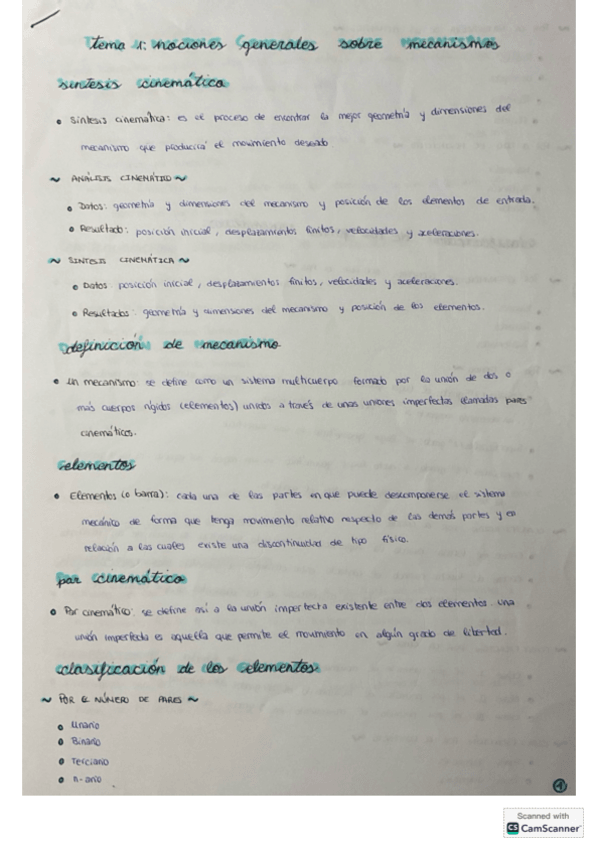 tema 1: nociones generales sobre mecanismos
síntesis cinemática
• Síntesis cinemática: es el proceso de encontrar la mejor geometría y dimensiones del
mecanismo que producirá el movimiento deseado
~ ANÁLISIS CINEMÁTICO ~
• Datos: geometría y dimensiones del mecanismo y posición de los elementos de entrada.
• Resultado: posición inicial, desplazamientos finitos, velocidades y aceleraciones.
~ SÍNTESIS CINEMÁTICA ~
• Datos posición inicial, desplazamientos finitos, velocidades y aceleraciones.
• Resultados: geometría y dimensiones del mecanismo y posición de los elementos.
definición de mecanismo
• Un mecanismo: se define como un sistema multicuerpo formado por la unión de dos o
más cuerpos rígidos (elementos) unidos a través de unas uniones imperfectas llamadas pares
cinemáticos.
elementos
• Elementos (o barra): cada una de las partes en que puede descomponerse el sistema
mecánico de forma que tenga movimiento relativo respecto de las demás partes y en
relación a las cuales existe una discontinuidad de tipo físico.
par cinemático
• Par cinemático: se define así a la unión imperfecta existente entre dos elementos. una
unión imperfecta es aquella que permite el movimiento en algún grado de libertad.
clasificación de los elementos
~ POR EL NÚMERO DE PARES ~
• Unario
• Binario
• Terciario
• n-ario
1
Scanned with
CS CamScanner